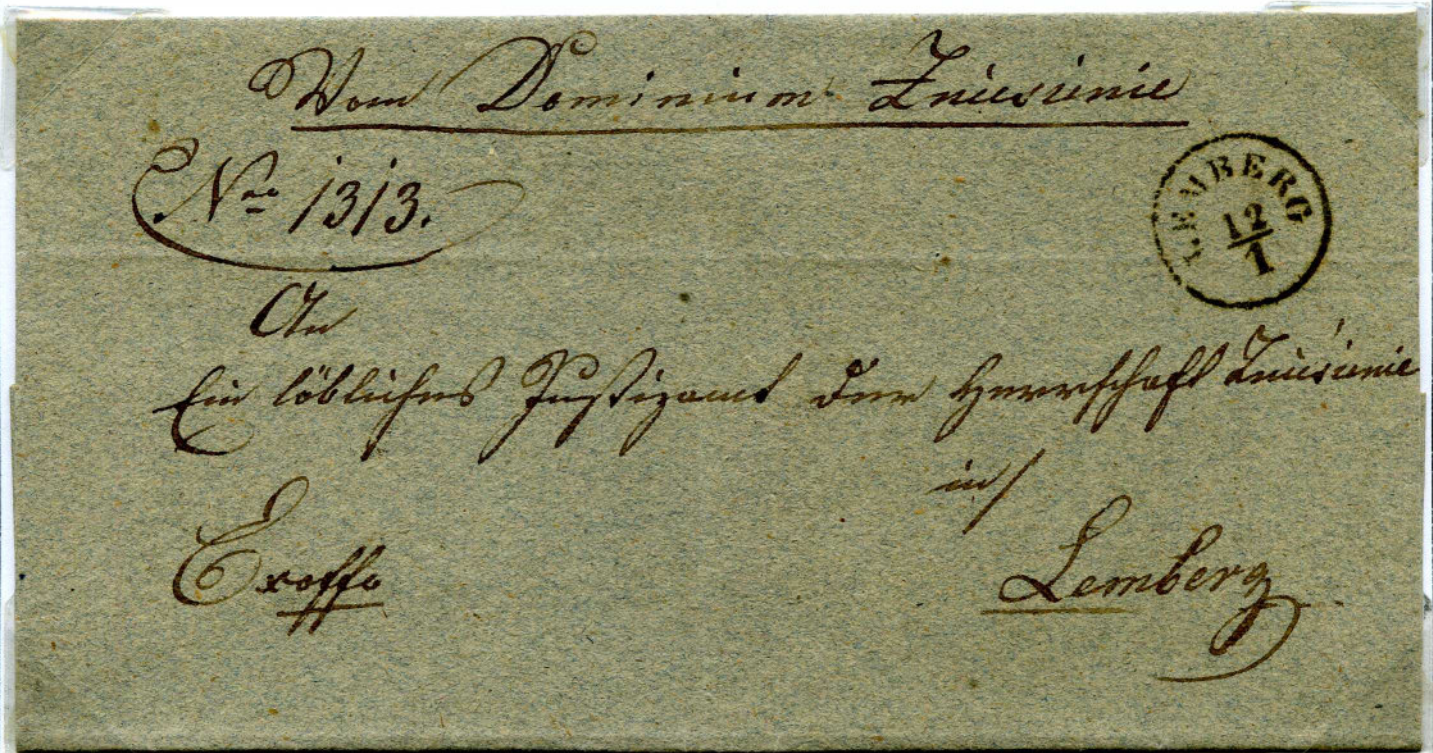 Vom Dominium Zniesienie
Nro 1313.
LEMBERG
12/1
An
Ein löbliches Justizamt der Herrschaft Zniesienie
in/
Lemberg
Exoffo